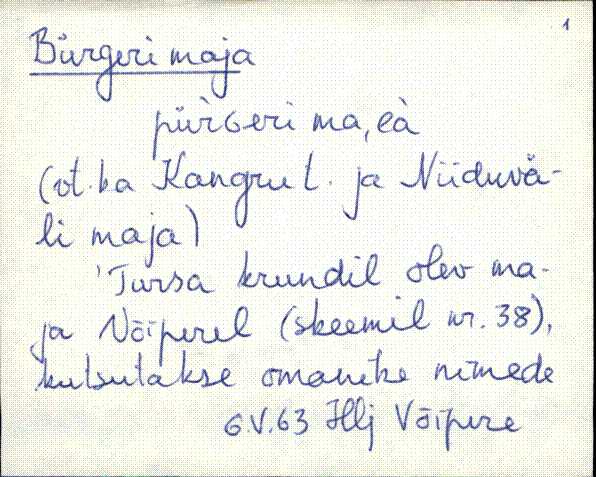 1
Bürgeri maja
pürGeri ma,eà
(vt. ka Kangru t. ja Niiduvä-
li maja)
'Tursa krundil olev ma-
ja Võiperel (skeemil nr. 38),
kutsutakse omanike nimede
6.V.63 Hlj Võipere